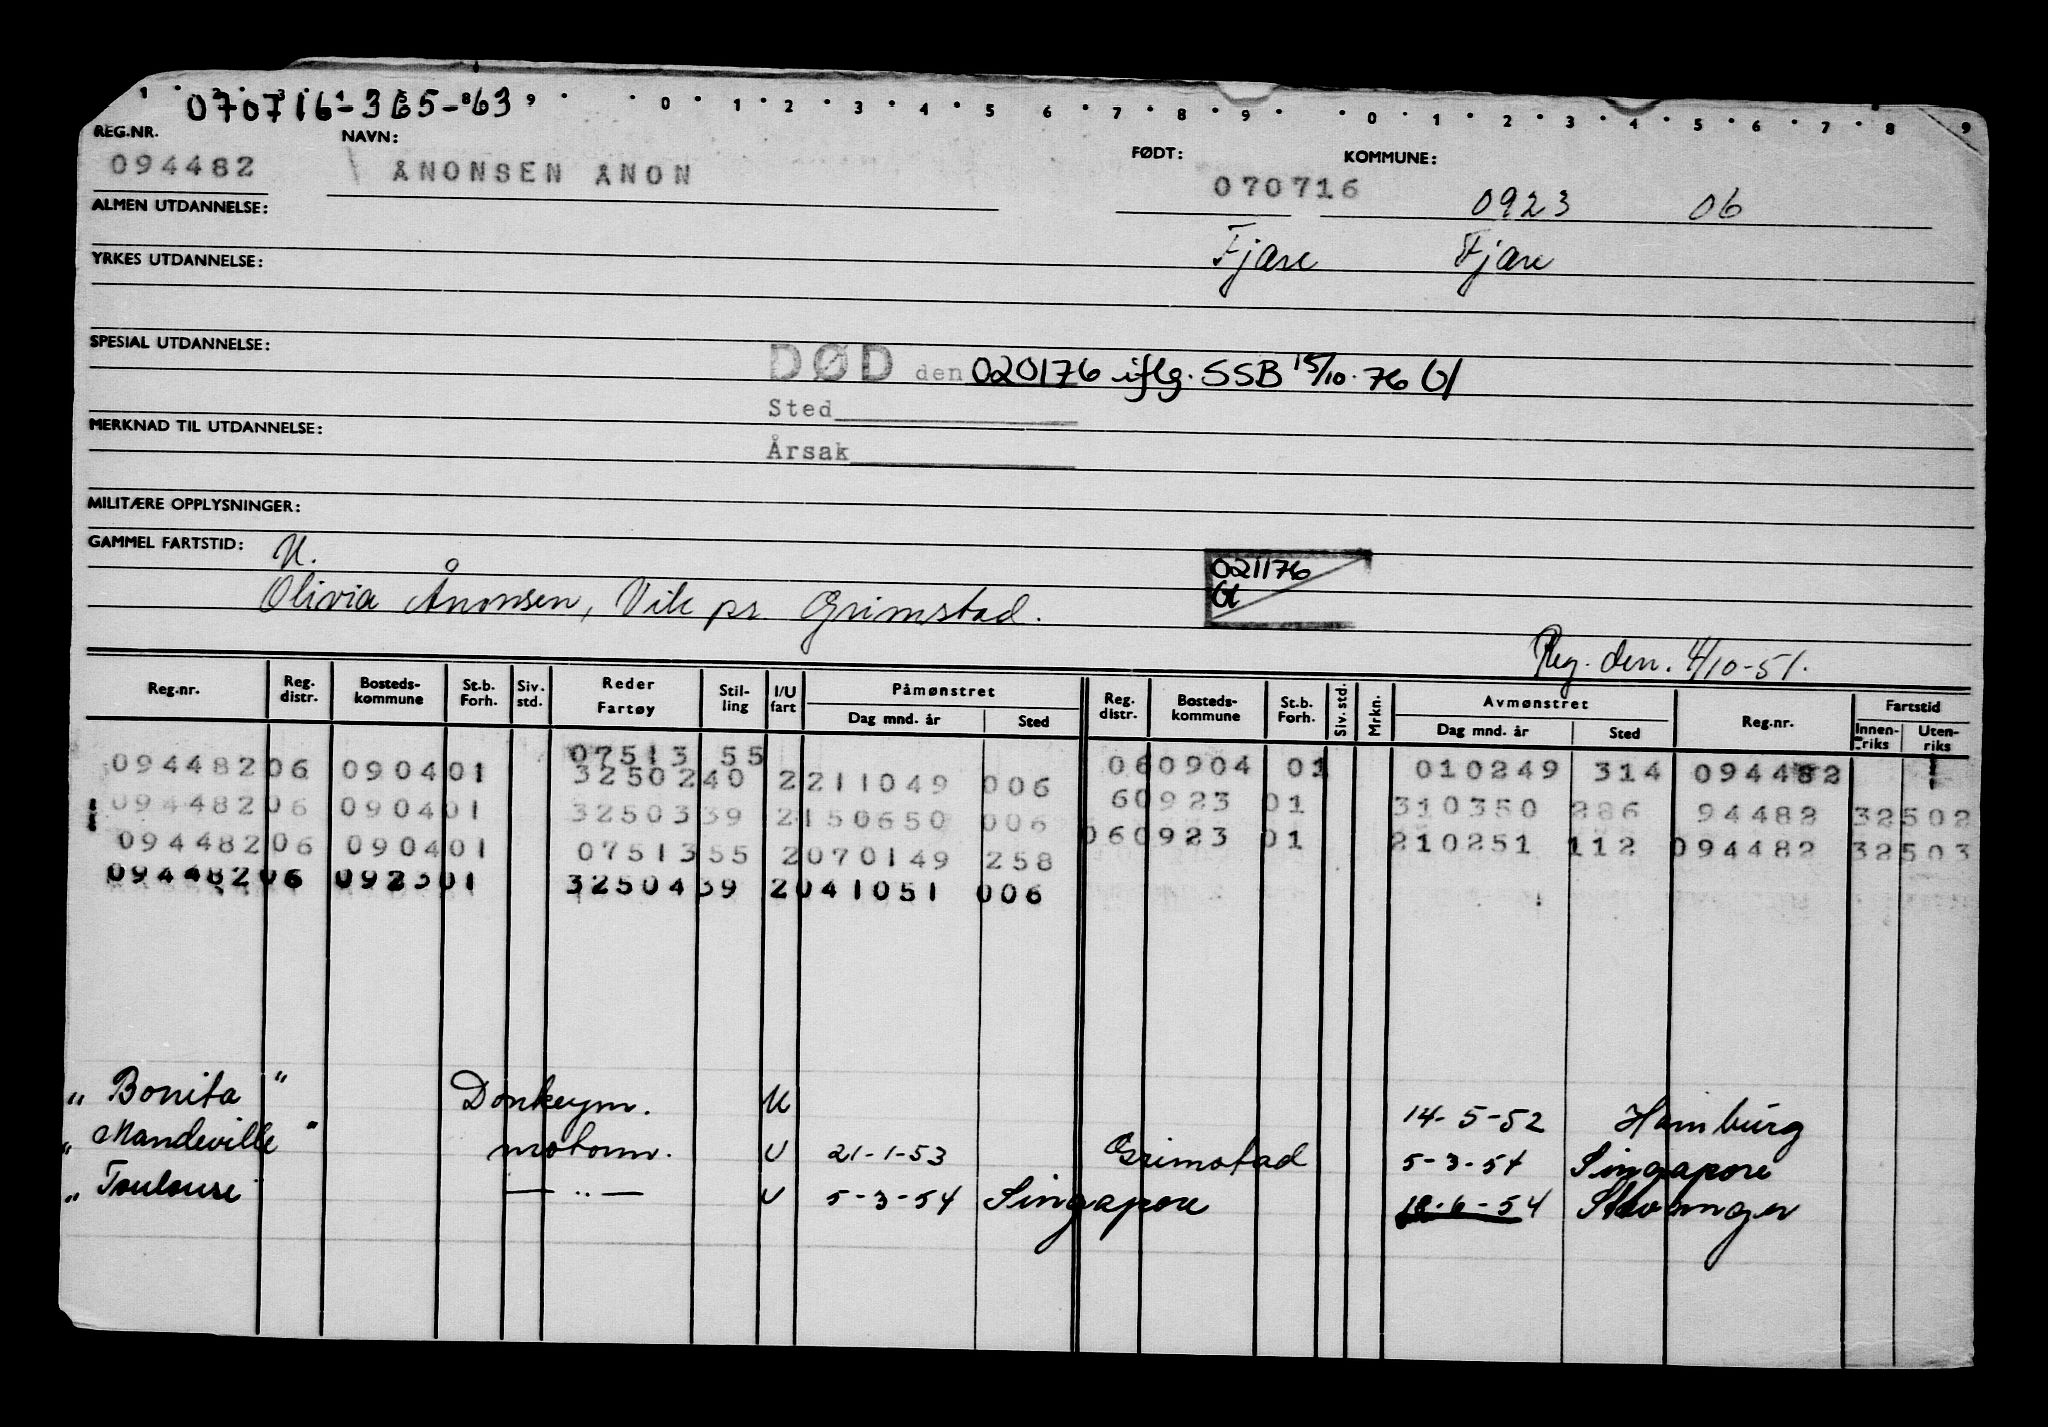 070716-365-63
1 2 3 4 5 8 9 0 1 2 3 4 5 6 7 8 9 0 1 2 3 4 5 6 7 8 9
REG.NR. NAVN: FØDT: KOMMUNE:
094482 ÅNONSEN ANON 070716 0923 06
ALMEN UTDANNELSE:
Fjære Fjære
YRKES UTDANNELSE:
SPESIAL UTDANNELSE:
DØD den 020176 iflg. SSB 15/10.76
Sted
MERKNAD TIL UTDANNELSE:
Årsak
MILITÆRE OPPLYSNINGER:
GAMMEL FARTSTID: U.
021176
Olivia Ånonsen, Vik pr. Grimstad.
Reg. den. 4/10-51.
Reg.nr. Reg. distr. Bosteds-kommune St.b. Forh. Siv. std. Reder Fartøy Stil-ling I/U fart Påmønstret Dag mnd. år Sted Reg. distr. Bosteds-kommune St.b. Forh. Siv. std. Mrkn. Avmønstret Dag mnd. år Sted Reg.nr. Fartstid Innen-riks Uten-riks
07513 55
094482 06 0904 01 32502 40 2 211049 006 06 0904 01 010249 314 094482
094482 06 0904 01 32503 39 2 150650 006 6 0923 01 310350 286 94482 32502
094482 06 0904 01 07513 55 2 070149 258 06 0923 01 210251 112 094482 32503
094482 06 0923 01 32504 39 2 041051 006
„ Bonita " Donkeym. U 14-5-52 Hamburg
„ Mandeville " motorm. U 21-1-53 Grimstad 5-3-54 Singapore
„ Toulouse — „ — U 5-3-54 Singapore 18-6-54 Stavanger